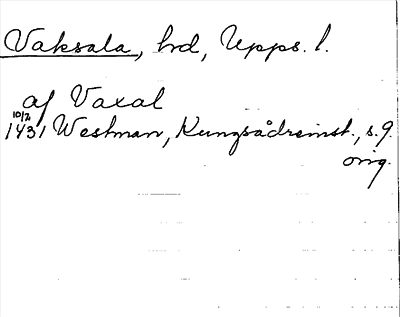 Vaksala, hd, Upps. l.
af Vaxal
10/2
1431 Westman, Kungsådreinst., s. 9.
orig.